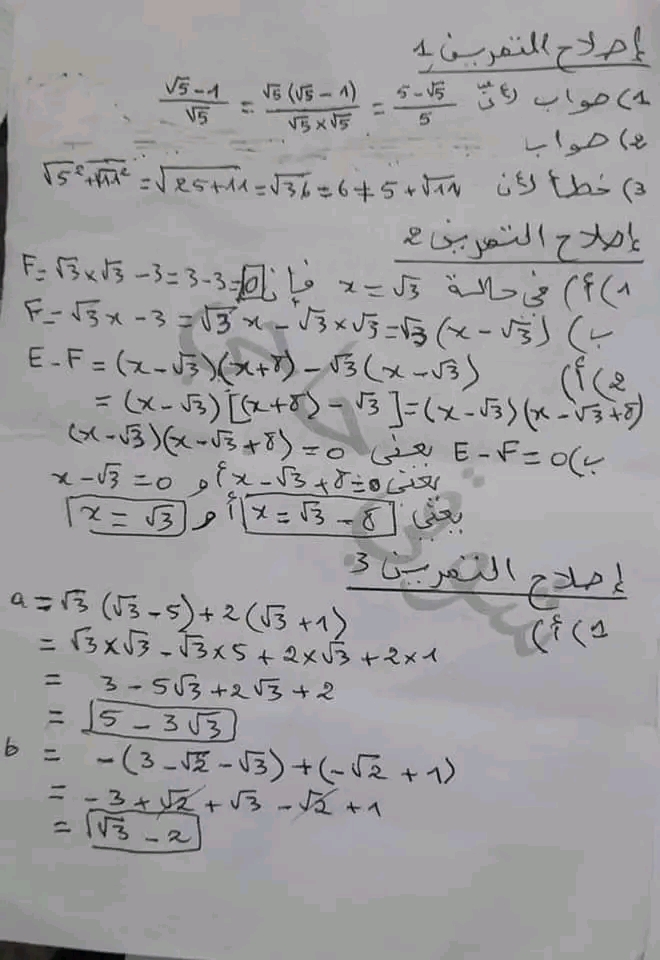 إصلاح التمرين 1
1) صواب لأن √5-1/√5 = √5(√5-1)/√5×√5 = 5-√5/5
2) صواب
3) خطأ لأن √5²+√11² = √25+11 = √36 = 6 ≠ 5+√11
إصلاح التمرين 2
1) أ) في حالة x = √3 فإن F = √3×√3 - 3 = 3-3 = 0
ب) F = √3x - 3 = √3 x - √3×√3 = √3(x-√3)
2) أ) E - F = (x-√3)(x+8) - √3(x-√3)
= (x-√3)[(x+8) - √3] = (x-√3)(x-√3+8)
ب) E-F=0 يعني (x-√3)(x-√3+8) = 0
يعني x-√3+8=0 أو x-√3 = 0
يعني x = √3 - 8 أو x = √3
إصلاح التمرين 3
1) أ) a = √3(√3-5)+2(√3+1)
= √3×√3 - √3×5 + 2×√3 + 2×1
= 3 - 5√3+2√3+2
= 5 - 3√3
b = -(3-√2-√3)+(-√2+1)
= -3+√2+√3-√2+1
= √3 - 2